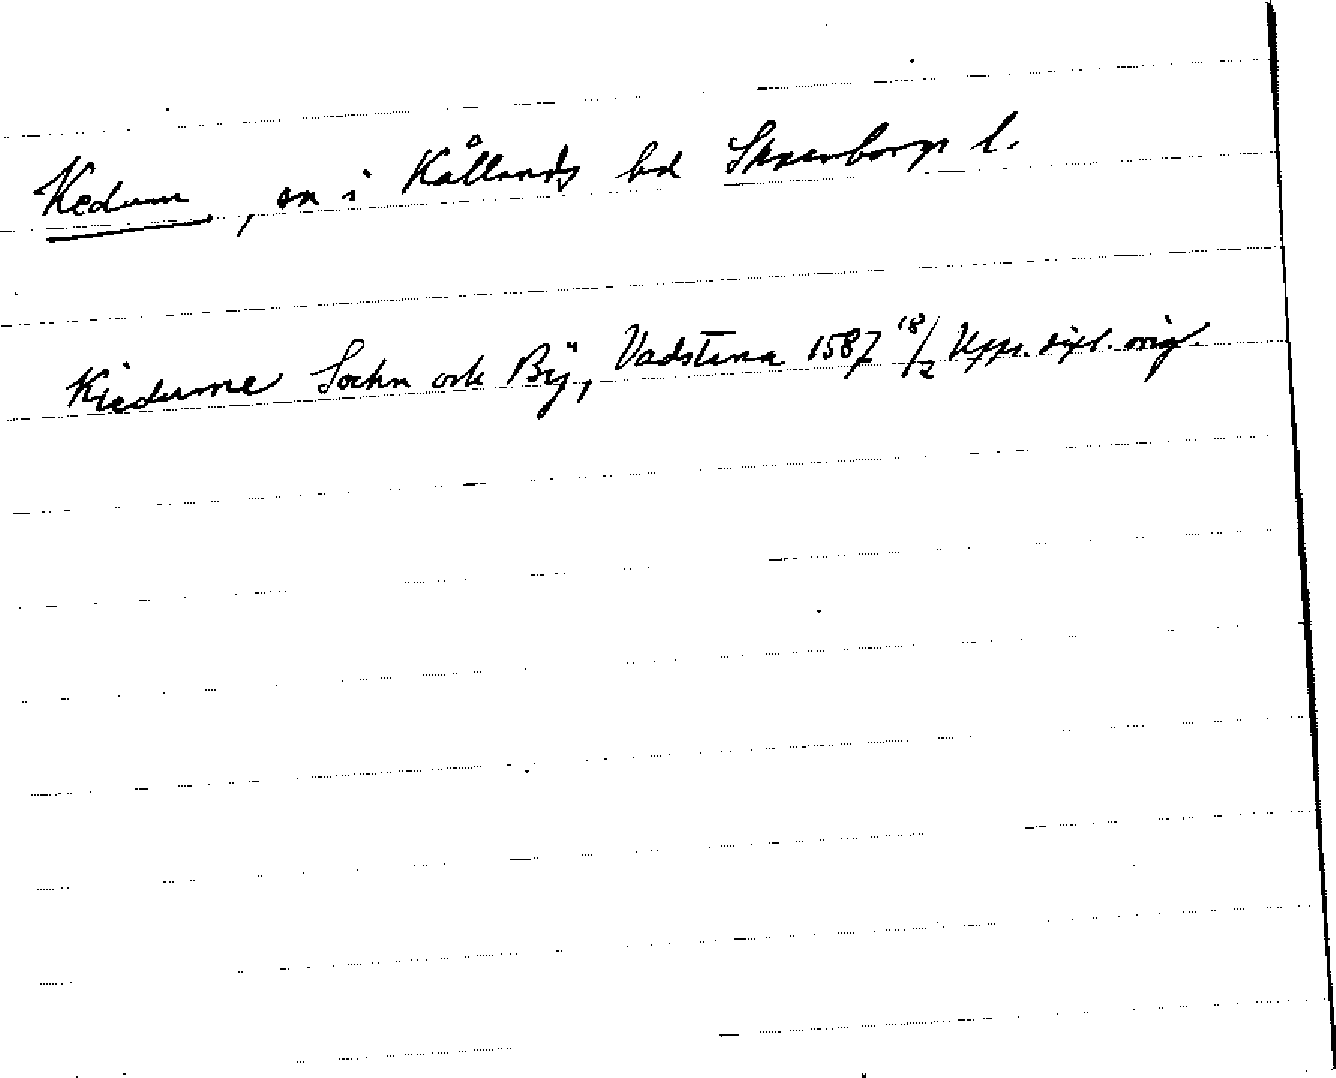 Kedum, sn i Kållands hd Skaraborgs l.
Kiedume Sochn och Bÿ, Vadstena 1587 18/2 Upps. dipl. orig.